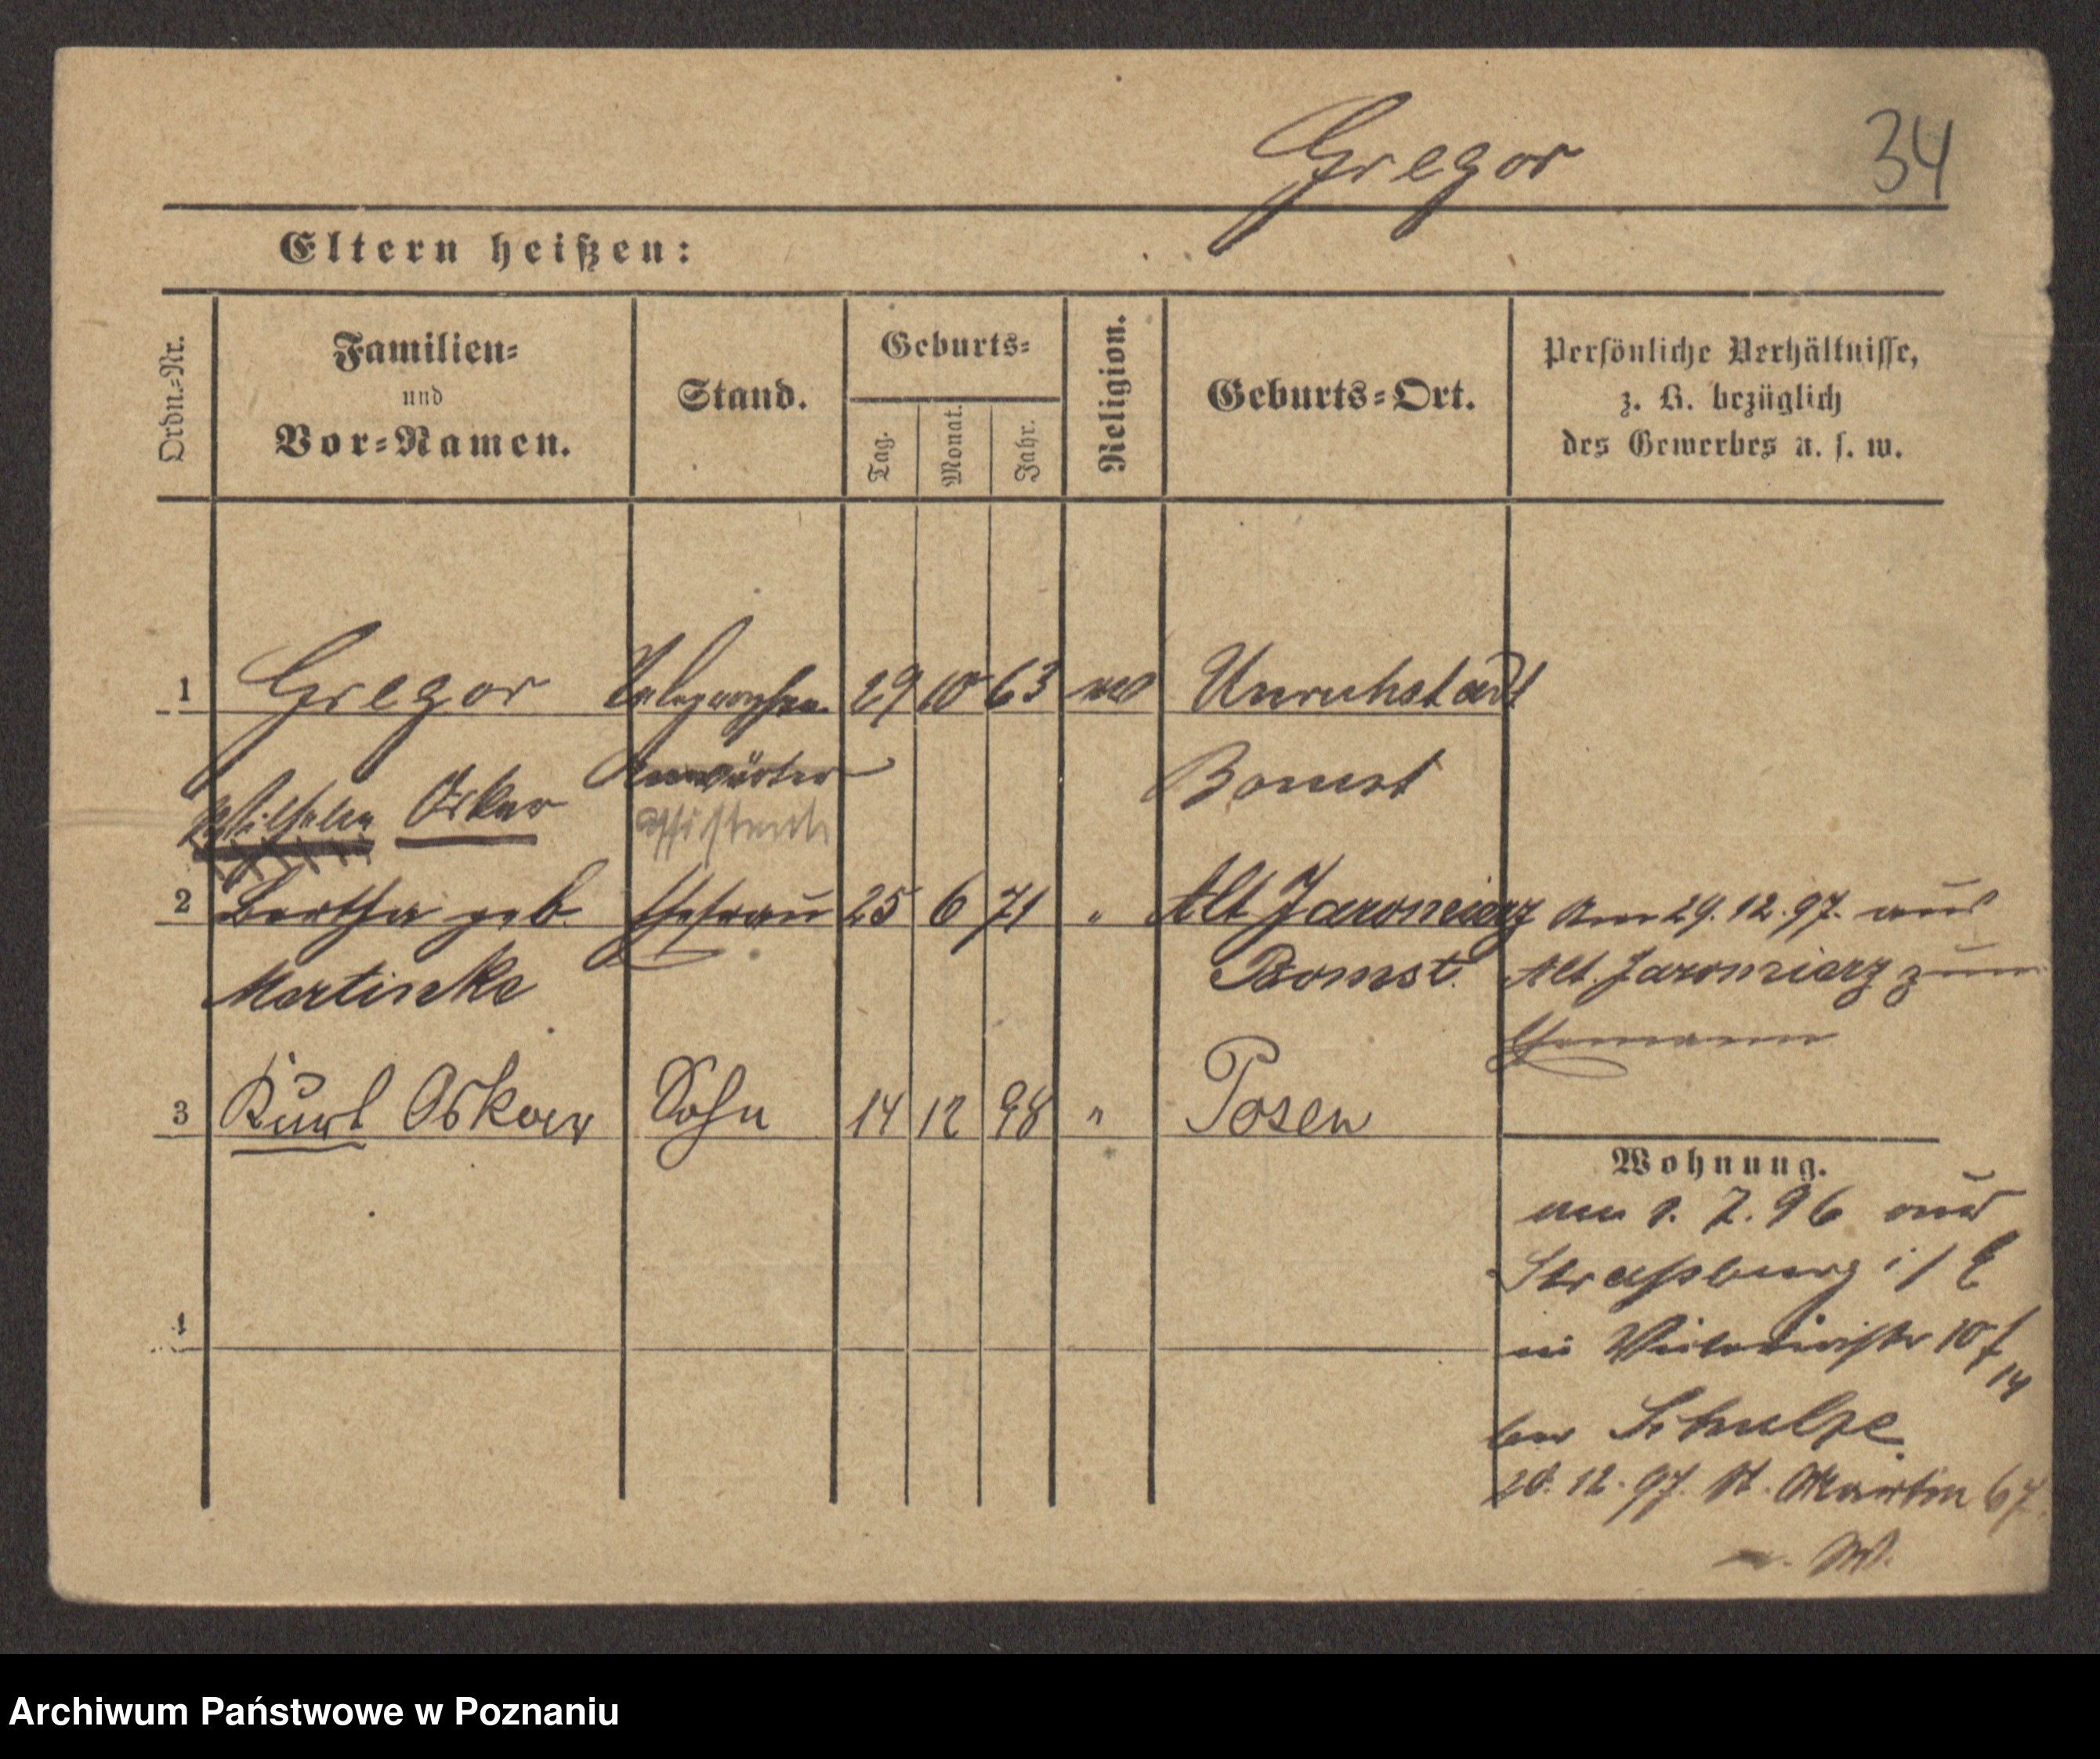 Gregor
34
Eltern heißen:
Ordn.=Nr.
Familien=
und
Vor=Namen.
Stand.
Geburts=
Tag.
Monat.
Jahr.
Religion.
Geburts=Ort.
Persönliche Verhältnisse,
z. B. bezüglich
des Gewerbes u. s. w.
1 Gregor Telegraphen 29 10 63 Unruhstadt
Anwärter Bomst
Wilhelm Oskar Assistent
2 Bertha geb. Ehefrau 25 6 71 " Alt Jaromierz Am 29. 12. 97. aus
Martinke Bomst. Alt. Jaromierz zum
Ehemann
3 Kurt Oskar Sohn 14 12 98 " Posen
Wohnung.
am 1. 7. 96 aus
Straßburg i/E
4 in 10
14
bei Schulze
20. 12. 97. St. Martin 67.
Archiwum Państwowe w Poznaniu